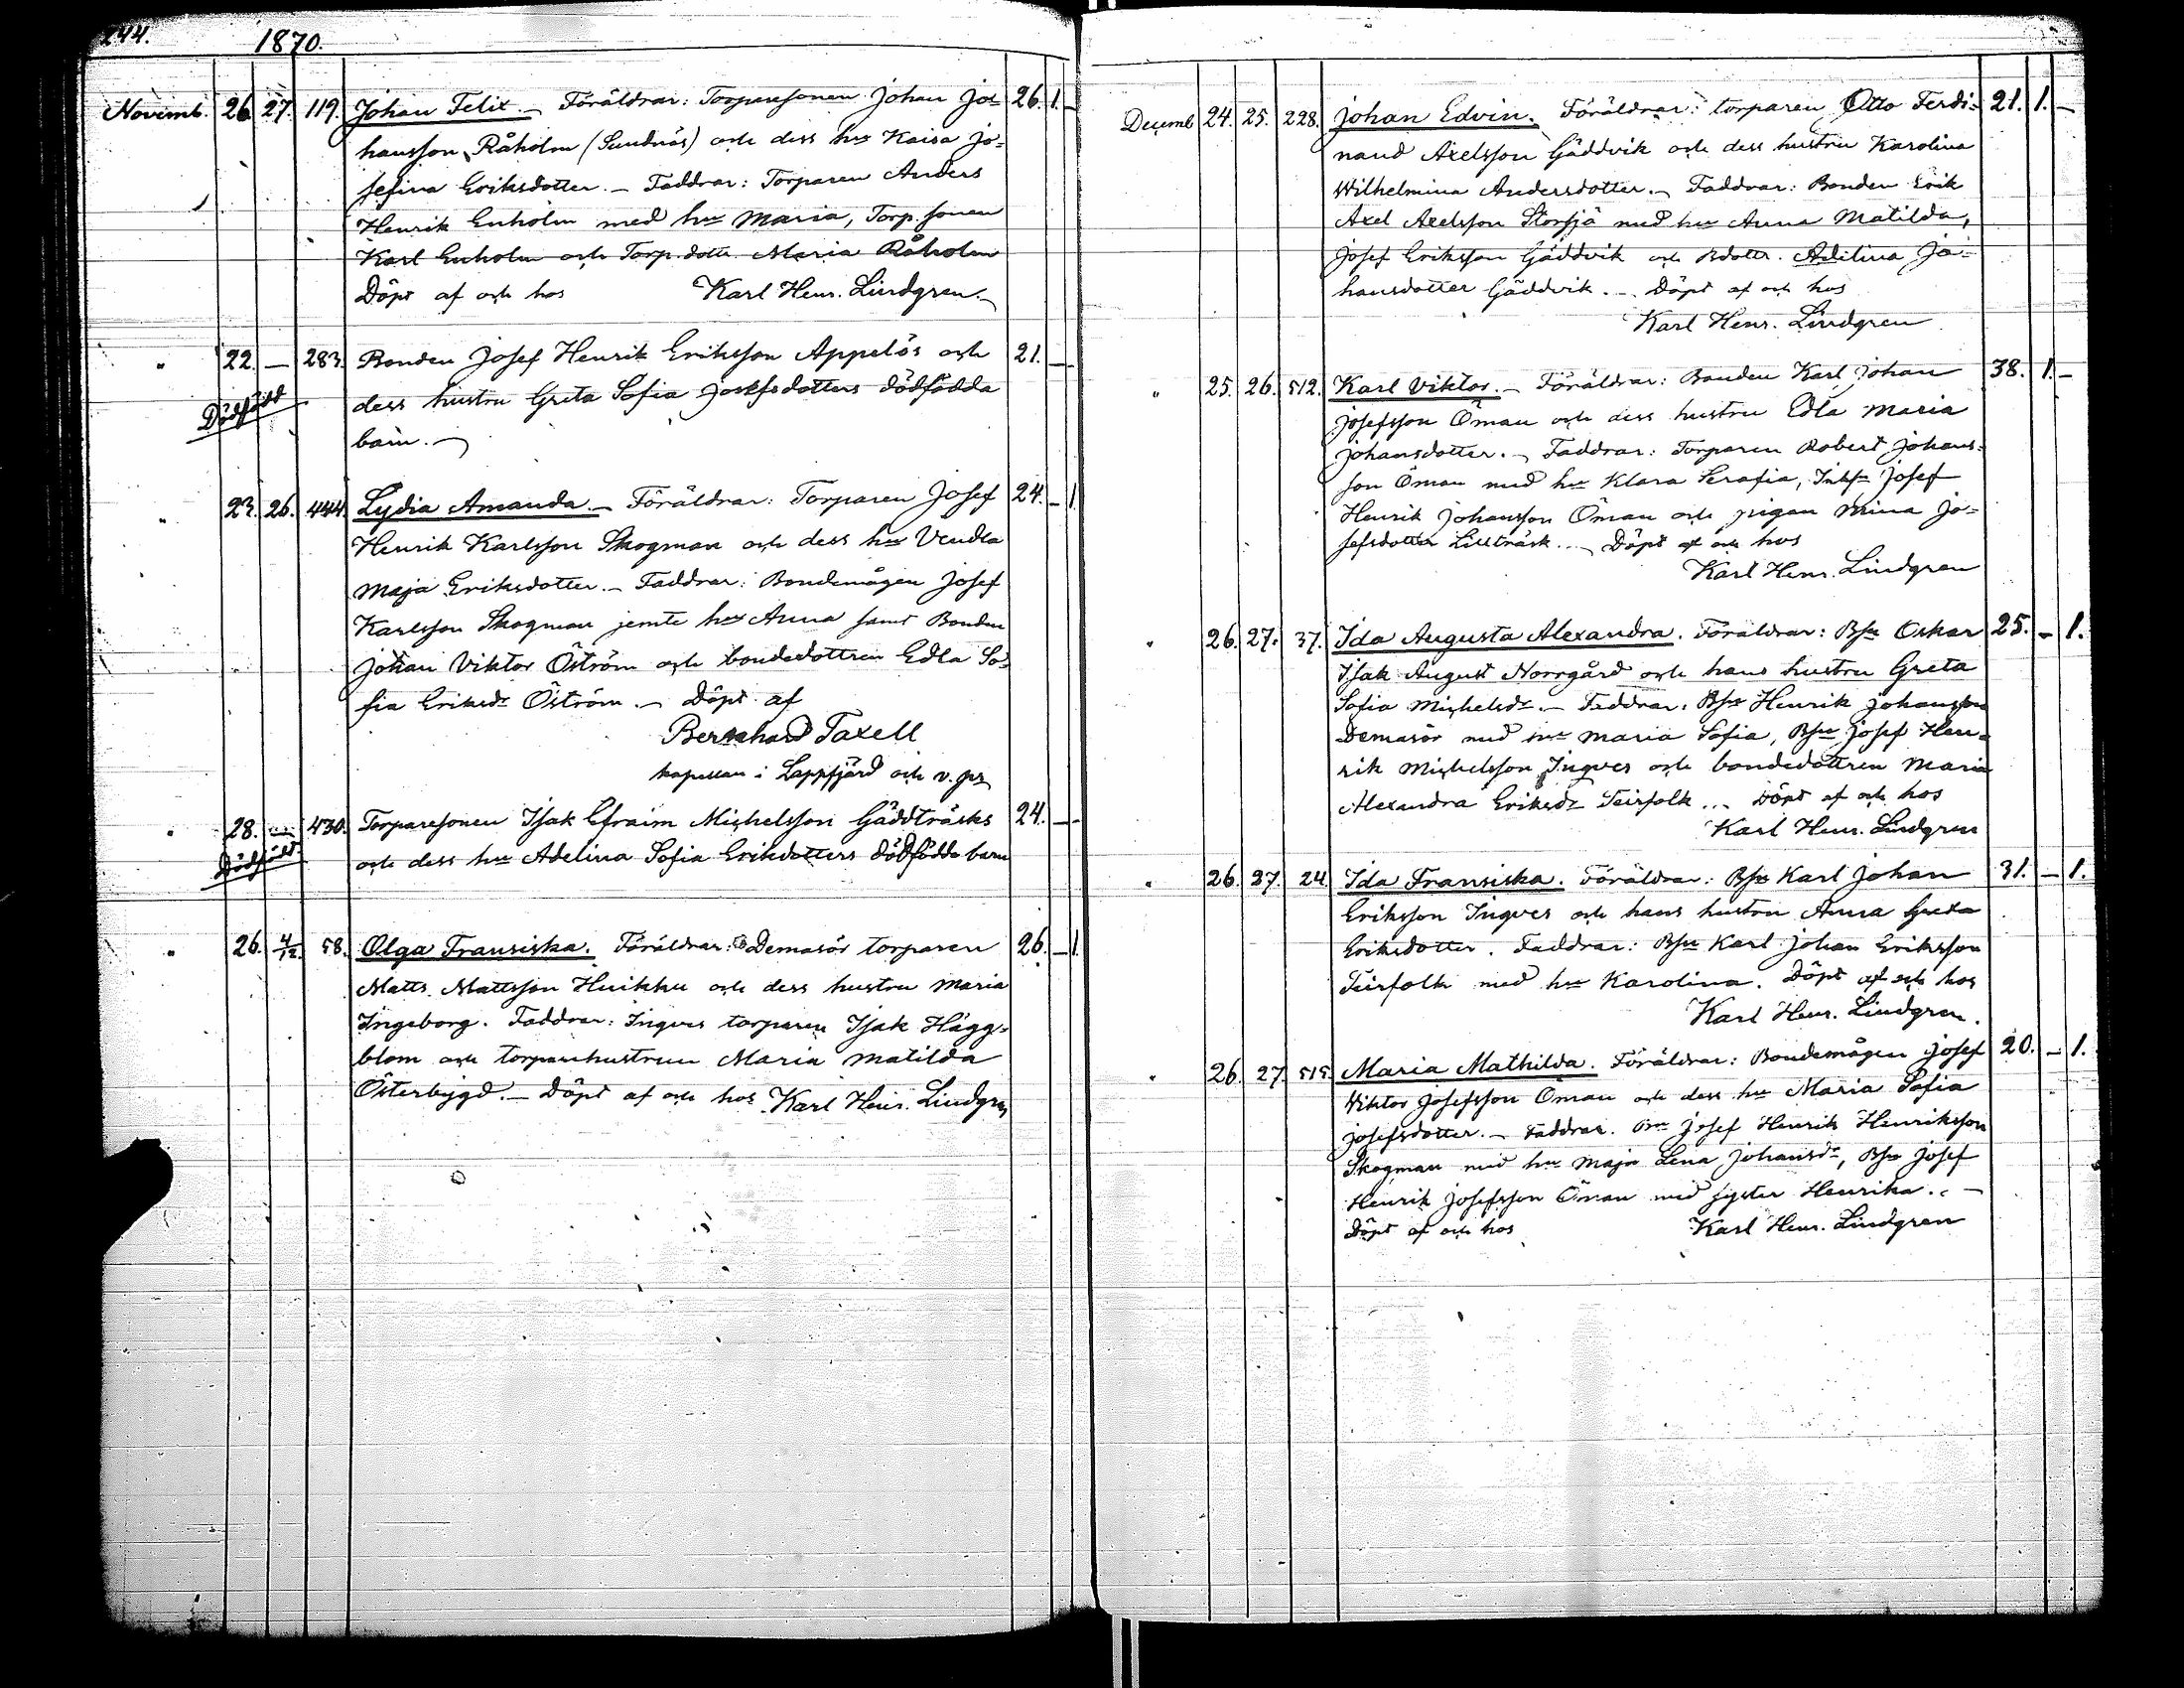 244.
1870.
Novemb. 26. 27. 119. Johan Felix. – Föräldrar: Torparesonen Johan Jo- 26. 1. –
hansson Råholm (Sundnäs) och dess hu Kaisa Jo-
sefina Eriksdotter. – Faddrar: Torparen Anders
Henrik Enholm med hu Maria, Torp. sonen
Karl Enholm och Torp. dottr Maria Råholm
Döpt af och hos Karl Henr. Lindgren. –
" 22. – 283. Bonden Josef Henrik Eriksson Appelös och 21. –
Dödfödt
dess hustru Greta Sofia Josefsdotters dödfödda
barn. –
" 23. 26. 444. Lydia Amanda. – Föräldrar: Torparen Josef 24. – 1
Henrik Karlsson Skogman och dess hu Vendla
Maja Eriksdotter. – Faddrar: Bondemågen Josef
Karlsson Skogman jemte hu Anna samt Bonden
Johan Viktor Öström och bondedottren Edla So-
fia Eriksdr Öström. – Döpt af
Bernhard Taxell
kapellan i Lappfjärd och v. pr
" 28. – 430. Torparesonen Isak Efraim Michelsson Gäddträsks 24. –
Dödfödt.
och dess hu Adelina Sofia Eriksdotters dödfödda barn
" 26. 4/12. 58. Olga Fransiska. Föräldrar: Demasör torparen 26. – 1
Matts Mattsson Huikku och dess hustru Maria
Ingeborg. Faddrar: Ingves torparen Isak Hägg-
blom och torparehustrun Maria Matilda
Österbygd. – Döpt af och hos Karl Henr. Lindgren
Decemb 24. 25. 228. Johan Edvin. Föräldrar: torparen Otto Ferdi- 21. 1. –
nand Axelsson Gäddvik och dess hustru Karolina
Wilhelmina Andersdotter. – Faddrar: Bonden Erik
Axel Axelsson Storsjö med hu Anna Matilda,
Josef Eriksson Gäddvik och Bdottr. Adelina Jo-
hansdotter Gäddvik. – Döpt af och hos
Karl Henr. Lindgren
" 25. 26. 512. Karl Viktor. – Föräldrar: Bonden Karl Johan 38. 1. –
Josefsson Öman och dess hustru Edla Maria
Johansdotter. – Faddrar: Torparen Robert Johans-
son Öman med hu Klara Serafia, Josef
Henrik Johansson Öman och pigan Mina Jo-
sefsdotter Lillträsk. – Döpt af och hos
Karl Henr. Lindgren
" 26. 27. 37. Ida Augusta Alexandra. Föräldrar: Bsn Oskar 25. – 1.
Isak August Norrgård och hans hustru Greta
Sofia Michelsdr. – Faddrar: Bsn Henrik Johansson
Demasör med hu Maria Sofia, Bsn Josef Hen-
rik Michelsson Ingves och bondedottren Maria
Alexandra Eriksdr Teirfolk. – Döpt af och hos
Karl Henr. Lindgren
" 26. 27. 24. Ida Fransiska. Föräldrar: Bsn Karl Johan 31. – 1.
Eriksson Ingves och hans hustru Anna Greta
Eriksdotter. Faddrar: Bsn Karl Johan Eriksson
Teirfolk med hu Karolina. Döpt af och hos
Karl Henr. Lindgren.
" 26. 27. 515. Maria Mathilda. Föräldrar: Bondemågen Josef 20. – 1.
Viktor Josefsson Öman och dess hu Maria Sofia
Josefsdotter. – Faddrar. Bn Josef Henrik Henriksson
Skogman med hu Maja Lena Johansdr, Bsn Josef
Henrik Josefsson Öman med syster Henrika. –
Döpt af och hos Karl Henr. Lindgren